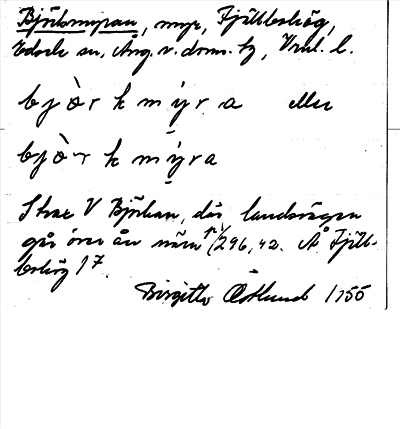 Björkmyran, myr, Fjällbohög,
Edsele sn, Ång. v. doms. tg, Vnl. l.
bjòrkmyra eller
bjòrkmyra
Strax V Björkan, där landsvägen
går över ån nära 296,42. Å Fjäll-
bohög 1 7.
Birgitta Östlund 1955